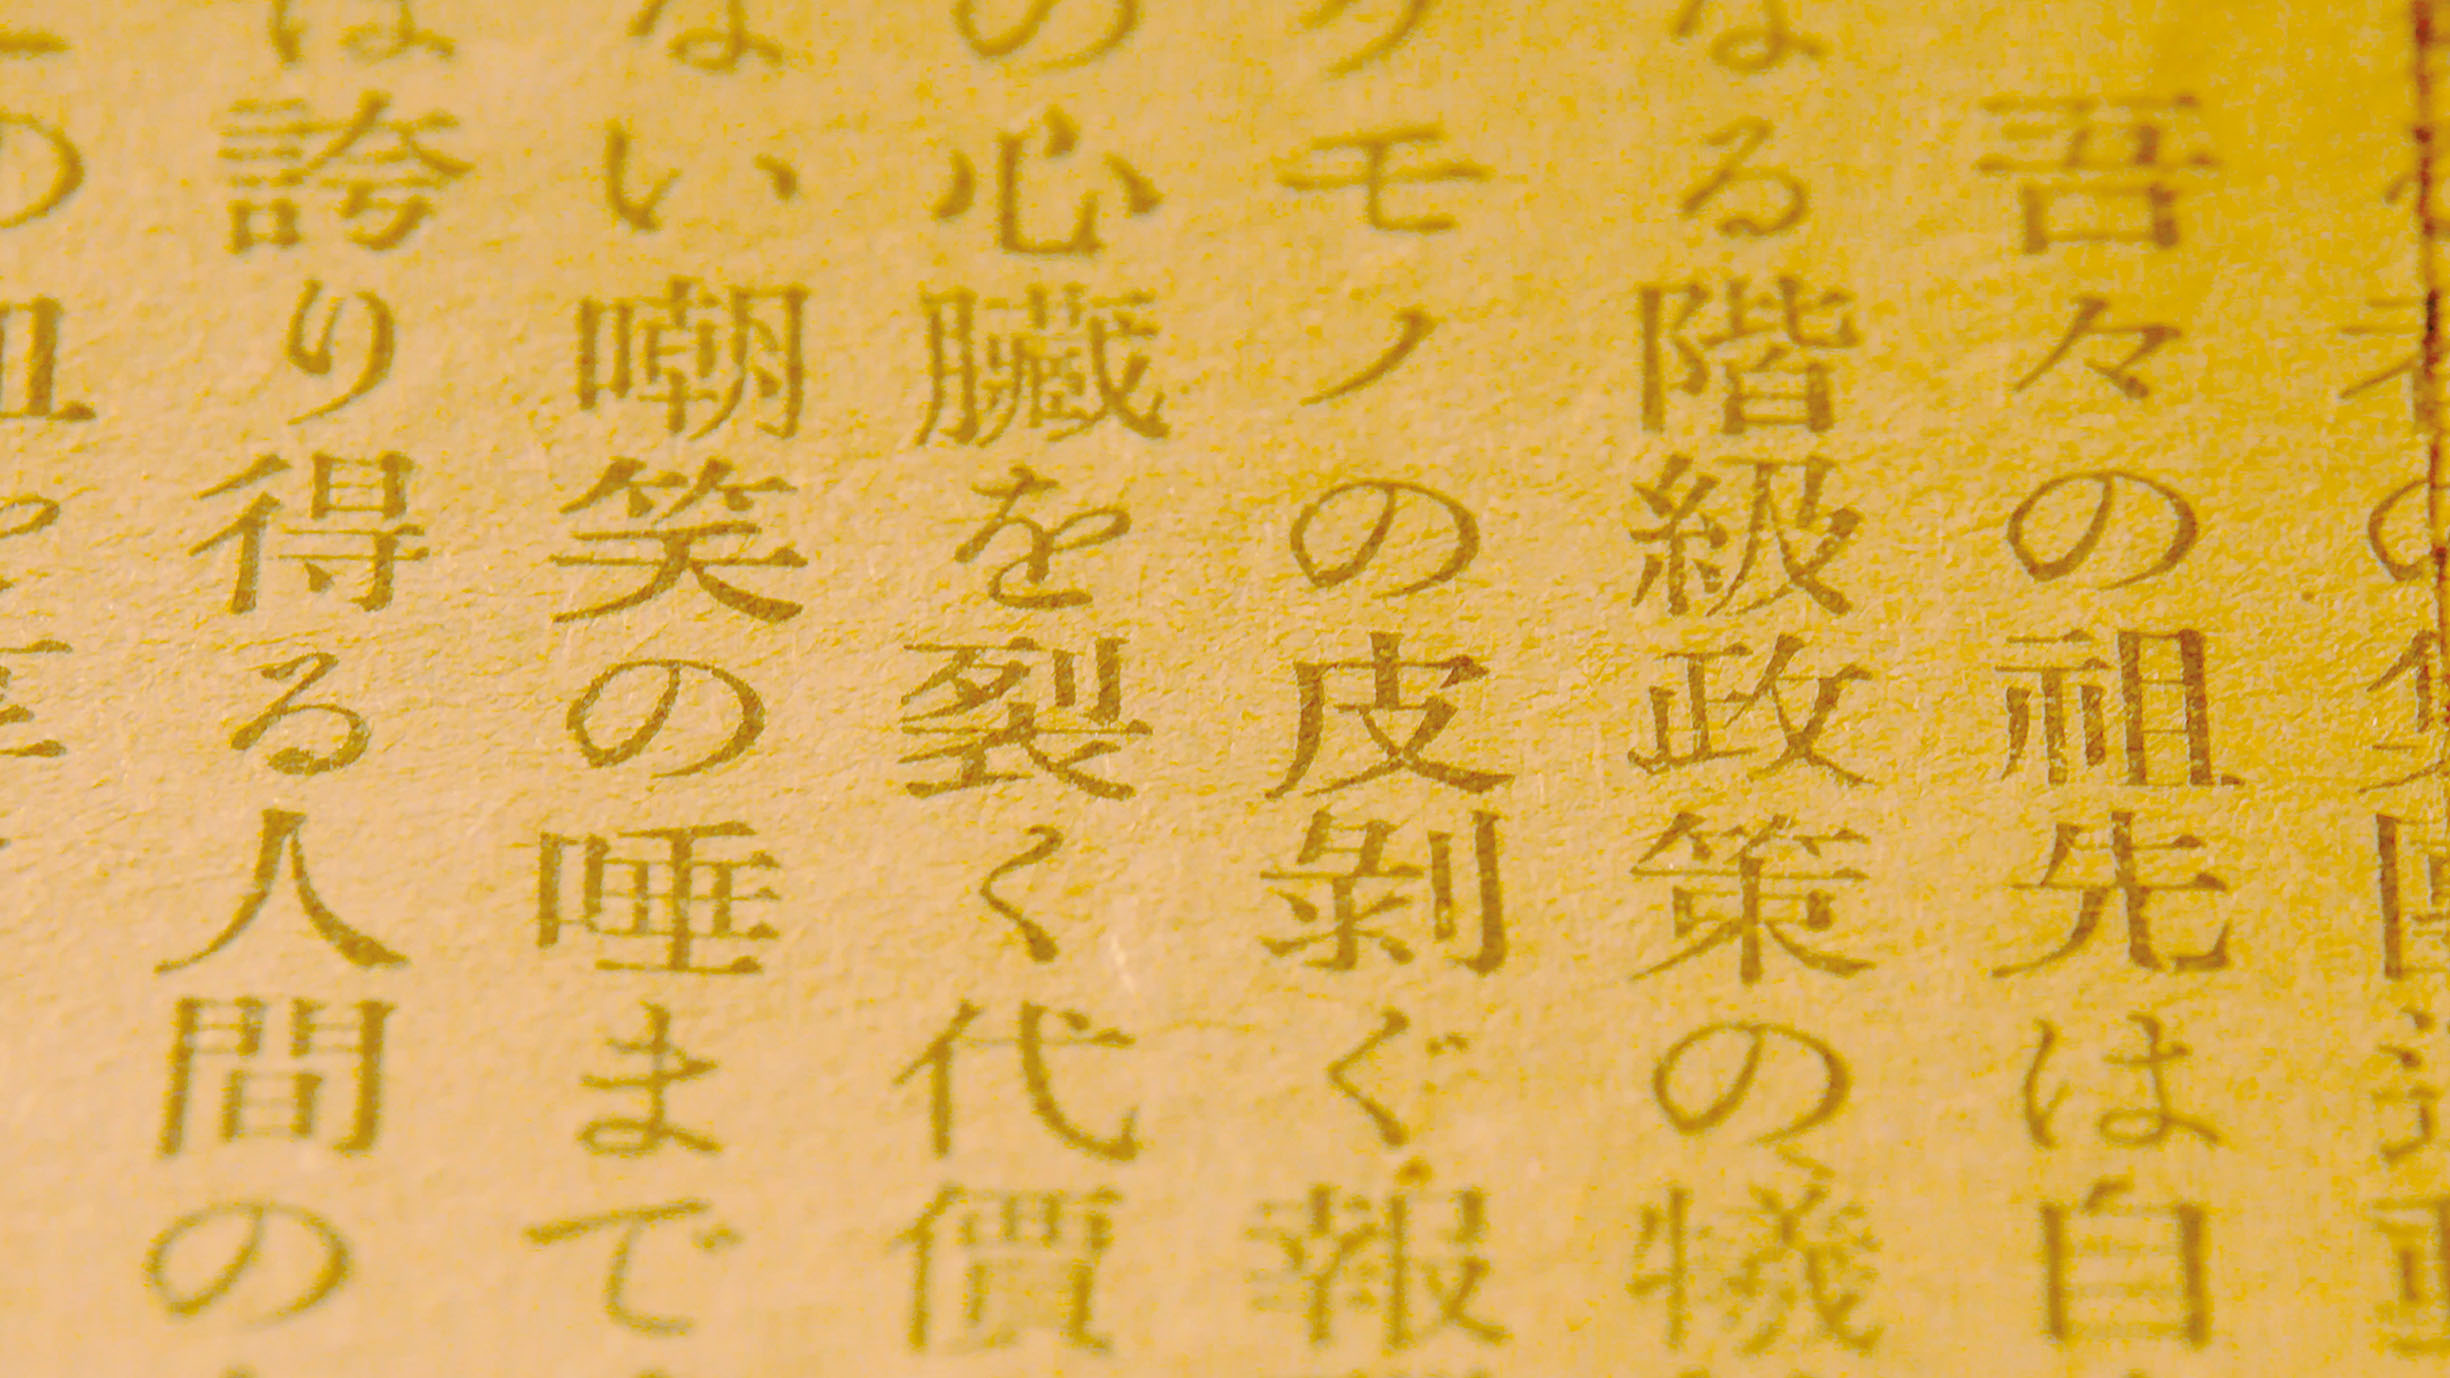 吾々の祖先は自
なる階級政策の犠
クモノの皮剝ぐ報
の心臓を裂く代價
ない嘲笑の唾まで
は誇り得る人間の